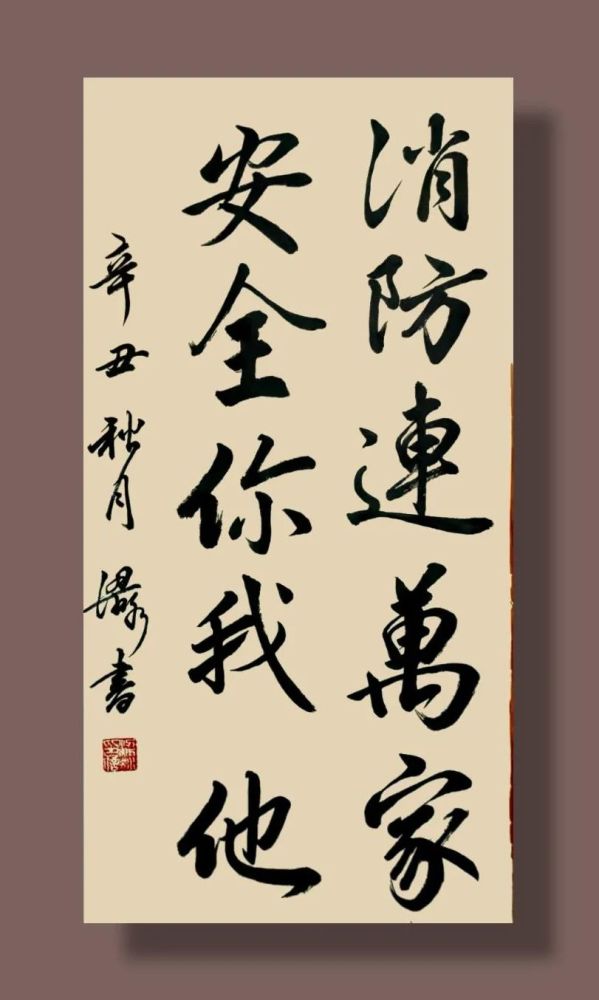 消防連萬家
安全你我他
辛丑秋月
書